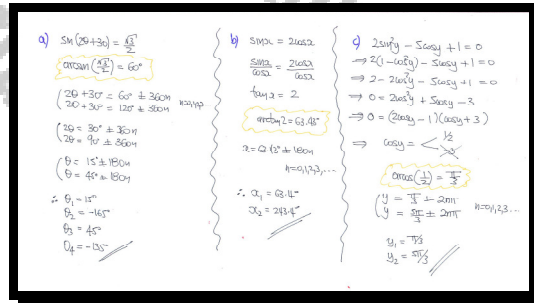 a) sin(2θ+30) = √3/2
arcsin(√3/2) = 60°
2θ+30° = 60° ± 360n
2θ+30° = 120° ± 360n
2θ = 30° ± 360n
2θ = 90° ± 360n
θ = 15° ± 180n
θ = 45° ± 180n
∴ θ₁ = 15°
θ₂ = -165°
θ₃ = 45°
θ₄ = -135°
b) sinx = 2cosx
sinx/cosx = 2cosx/cosx
tanx = 2
arctan2 = 63.43°
n=0,1,2,3,...
∴ x₁ = 63.4°
x₂ = 243.4°
c) 2sin²y - 5cosy + 1 = 0
⇒ 2(1-cos²y) - 5cosy + 1 = 0
⇒ 2 - 2cos²y - 5cosy + 1 = 0
⇒ 0 = 2cos²y + 5cosy - 3
⇒ 0 = (2cosy - 1)(cosy + 3)
⇒ cosy = < 1/2
arccos(1/2) = π/3
y = π/3 ± 2nπ
y = 5π/3 ± 2nπ
n=0,1,2,3,...
y₁ = π/3
y₂ = 5π/3